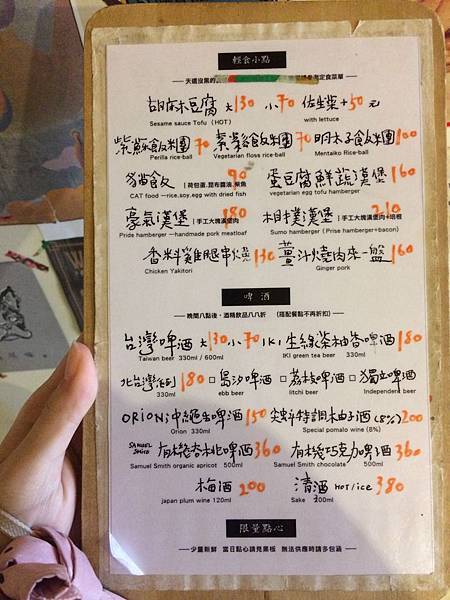 輕食小點
胡麻豆腐 大130 小70 佐生菜+50元
Sesame sauce Tofu (HOT) with lettuce
紫蘇飯糰70 素鬆飯糰70 明太子飯糰100
Perilla rice-ball Vegetarian floss rice-ball Mentaiko Rice-ball
貓飯 | 荷包蛋.昆布醬油.柴魚 90 蛋豆腐鮮蔬漢堡160
CAT food —rice.soy.egg with dried fish vegetarian egg tofu hamberger
豪氣漢堡 | 手工大塊漢堡肉 180 相撲漢堡 | 手工大塊漢堡肉+培根 210
Pride hamberger —handmade pork meatloaf Sumo hamberger (Prise hamberger+bacon)
香料雞腿串燒130 薑汁燒肉來一盤160
Chicken Yakitori Ginger pork
啤酒
— 晚間八點後，酒精飲品八八折 (搭配餐點不再折扣) —
台灣啤酒 大130小70 IKI 生綠茶柚香啤酒180
Taiwan beer 330ml / 600ml IKI green tea beer 330ml
北台灣系列180 □烏汐啤酒 □荔枝啤酒 □獨立啤酒
330ml ebb beer litchi beer Independent beer
ORION沖繩生啤酒150 特調柚子酒(8%)200
Orion 330ml Special pomalo wine (8%)
SAMUEL SMITH 有機杏桃啤酒360 有機巧克力啤酒360
Samuel Smith organic apricot 500ml Samuel Smith chocolate 500ml
梅酒200 清酒 HOT/ice 380
japan plum wine 120ml Sake 300ml
限量點心
— 少量新鮮 當日點心請見黑板 無法供應時請多包涵 —